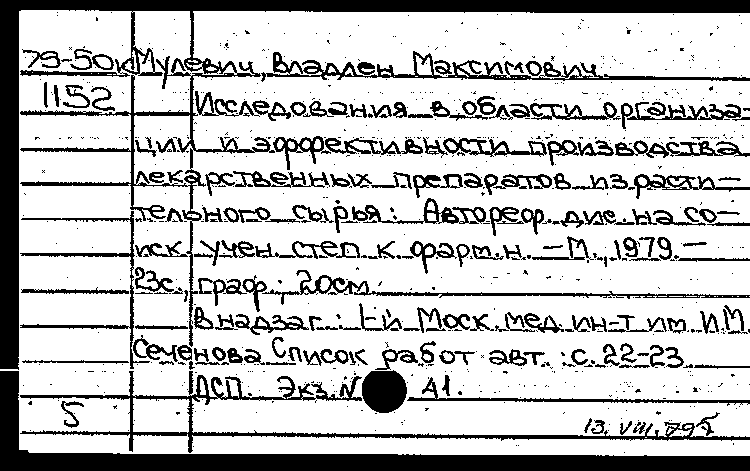 79-50к Мулевич, Владлен Максимович.
1152 Исследования в области организа-
ции и эффективности производства
лекарственных препаратов из расти-
тельного сырья: Автореф. дис. на со-
иск. учен. степ. к. фарм. н. — М., 1979. —
23с., граф.; 20см.
В надзаг.: I-й Моск. мед. ин-т им. И.М.
Сеченова Список работ авт.: с. 22-23
ДСП. Экз. N А1.
5
13. VIII. 79